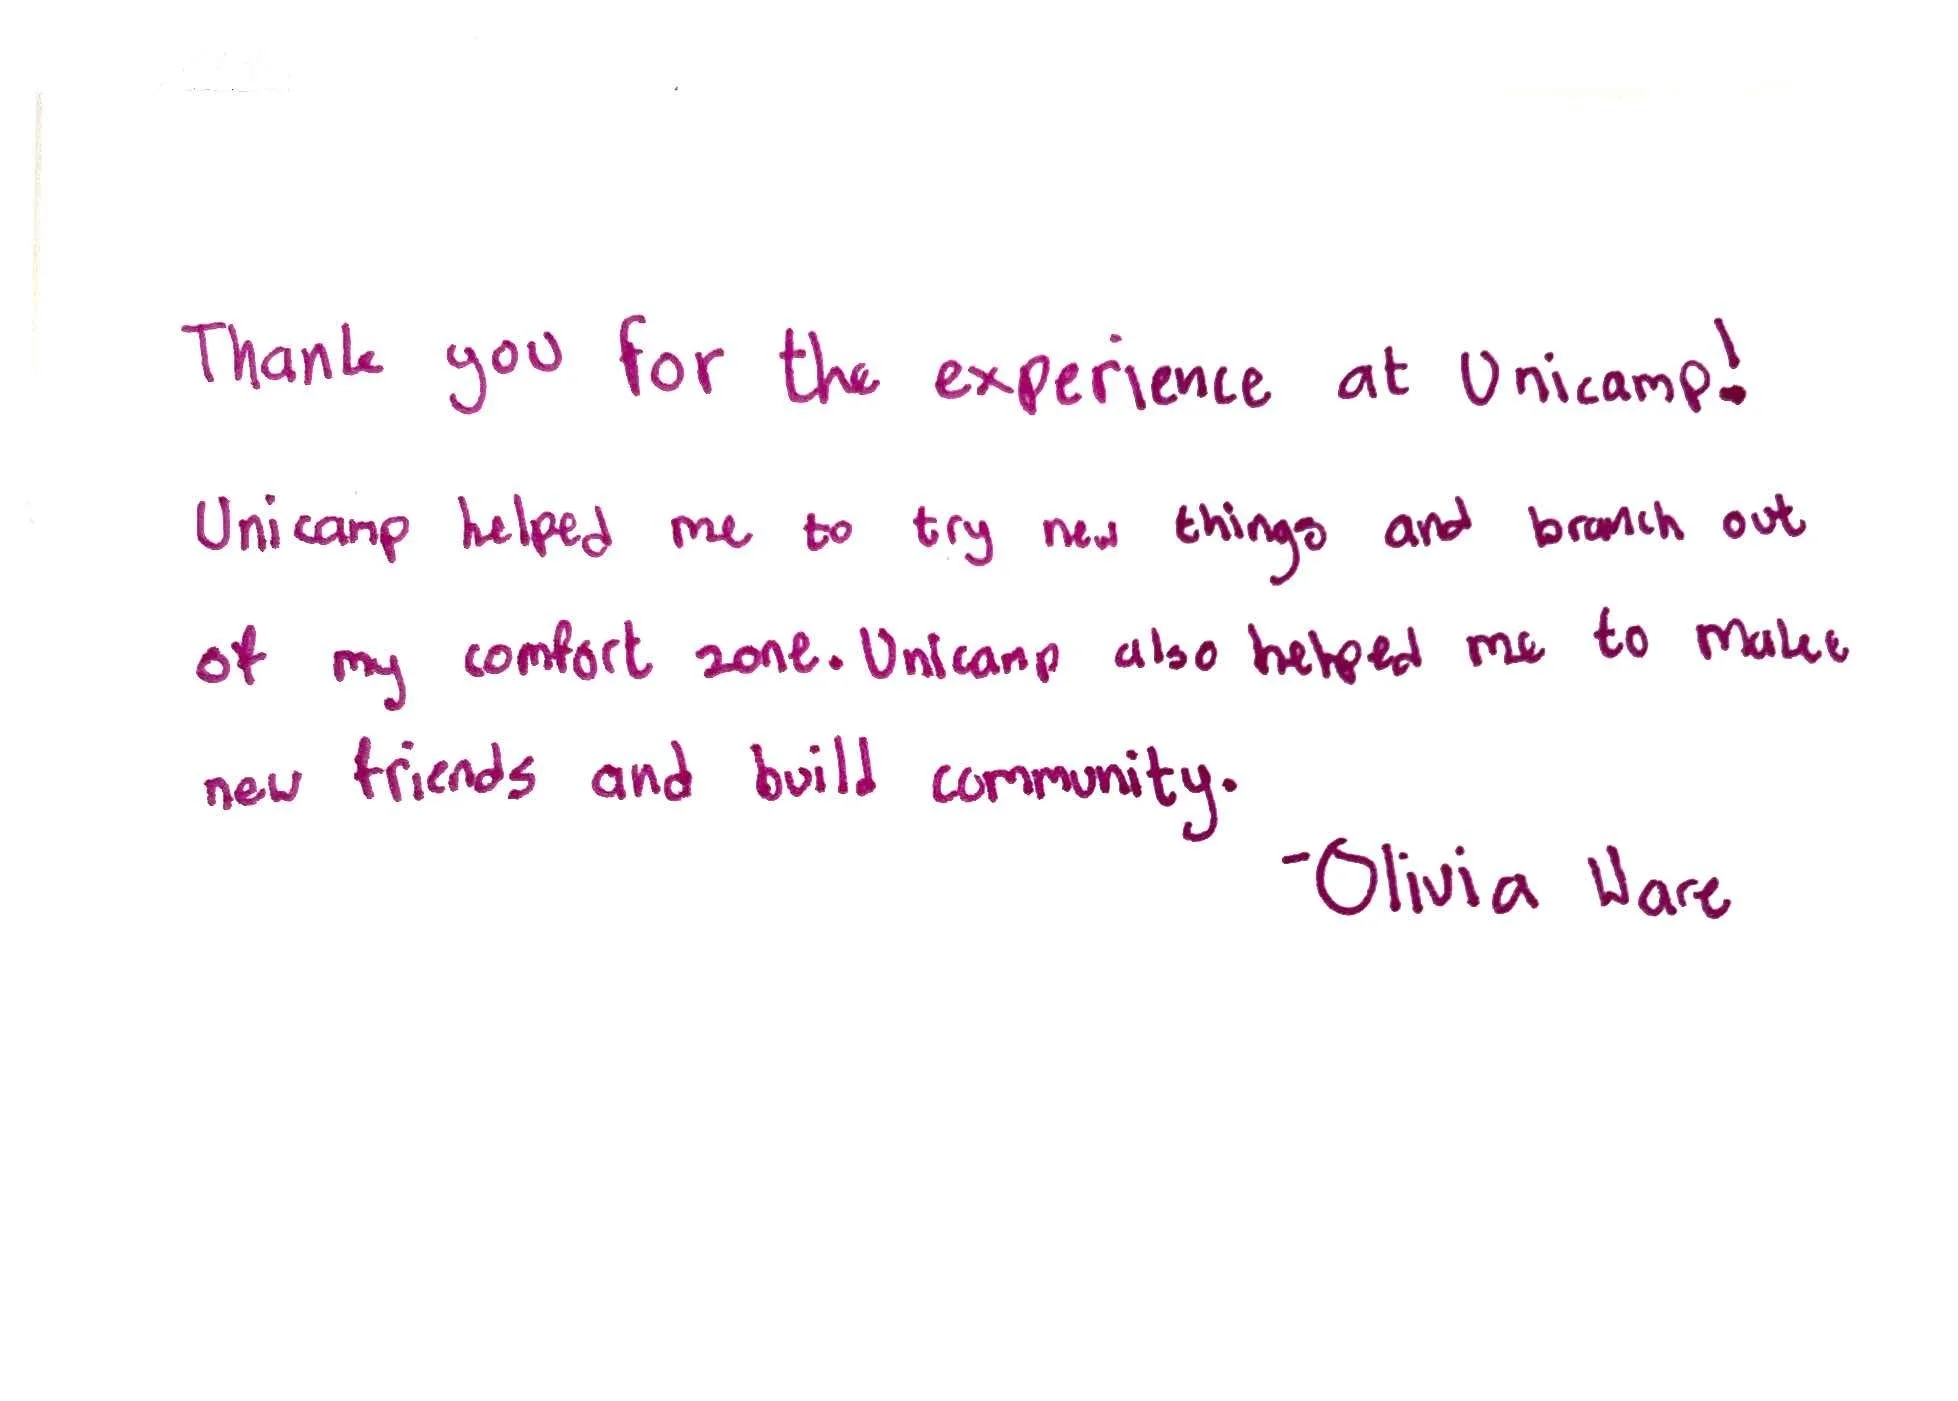 Thank you for the experience at Unicamp!
Unicamp helped me to try new things and branch out
of my comfort zone. Unicamp also helped me to make
new friends and build community.
-Olivia Ware